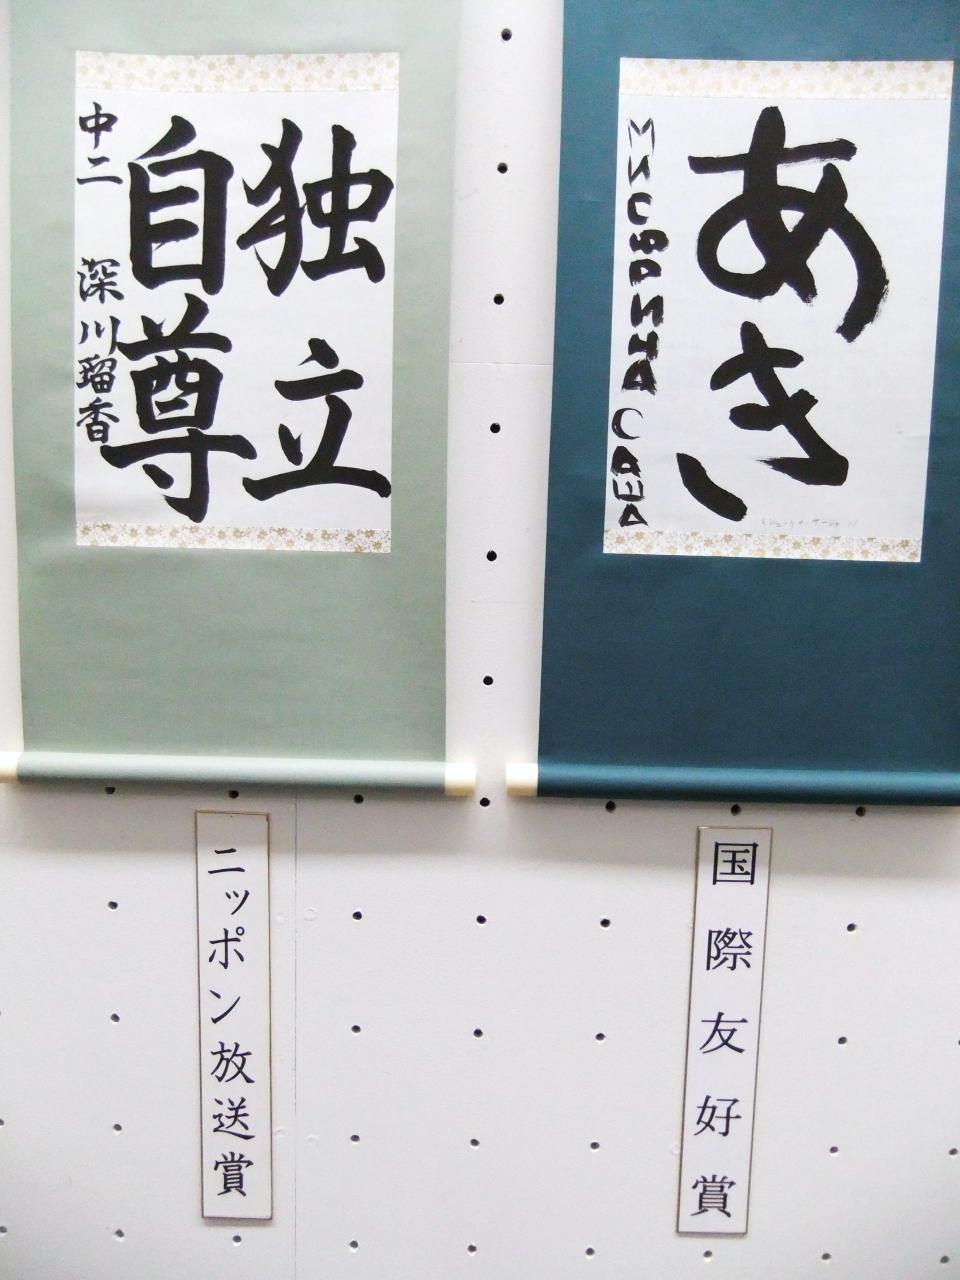 独立
自尊
中二 深川瑠香
ニッポン放送賞
あき
Саша
国際友好賞